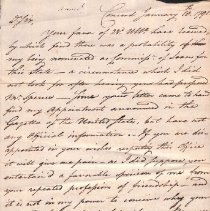 Concord January 10. 179
Dr Sir,
Your favor of the Ult I have received,
by which I find there was a probability of
my being nominated as Commiss. of Loans for
this State — a circumstance which I did
not look for after having
Mr Spence — Since your letter came to hand
find my Appointment announced in the
Gazette of the United States, but have not
any Official information. If you are dis-
appointed in your wishes respecting this Office
it will give me pain as I did suppose you
entertained a favorable opinion of me from
your repeated professions of friendship and
it is not in my power to conceive why you